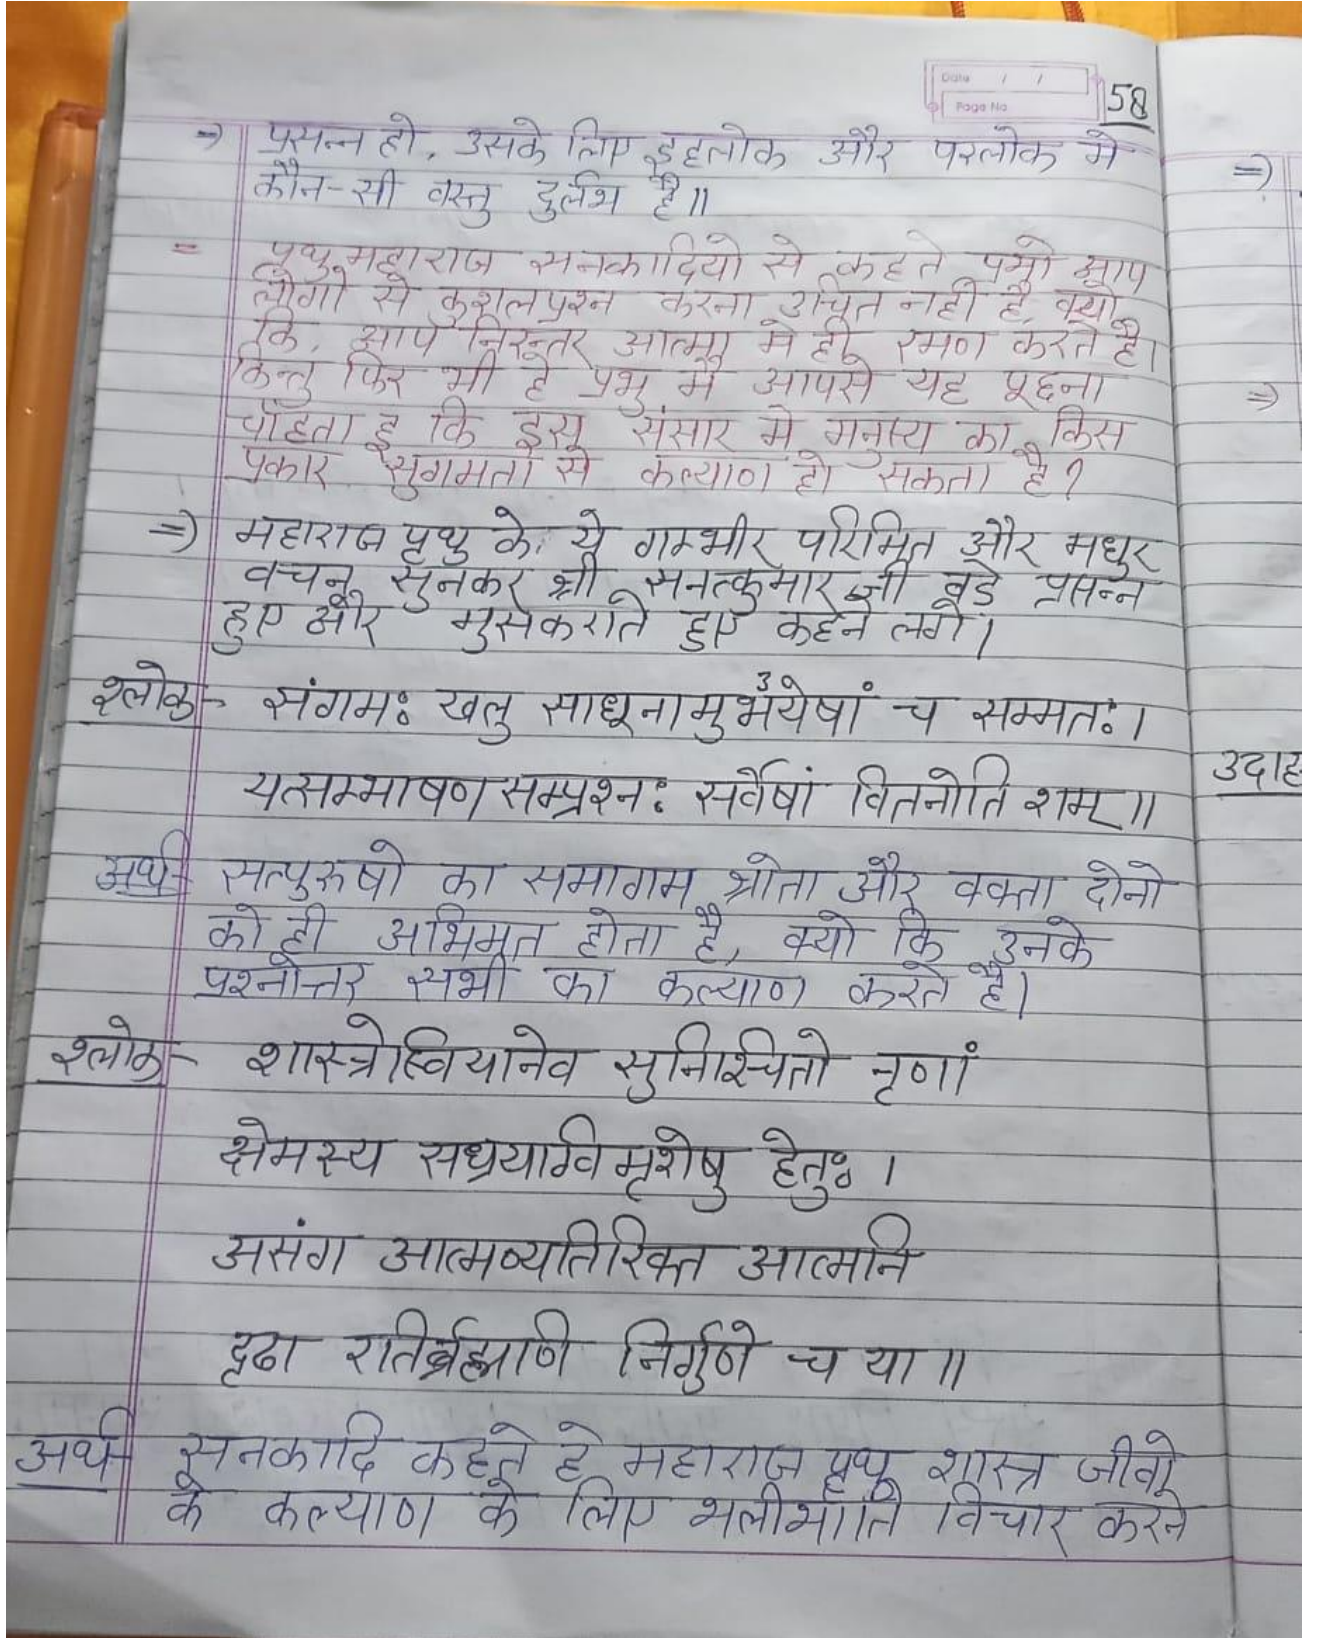 Date / /
Page No
58
=> प्रसन्न हो, उसके लिए इहलोक और परलोक मे
कौन-सी वस्तु दुर्लभ है॥
= पृथु महाराज सनकादियो से कहते प्रभो आप
लोगो से कुशलप्रश्न करना उचित नही है, क्यो
कि, आप निरन्तर आत्मा मे ही रमण करते है।
किन्तु फिर भी हे प्रभु मै आपसे यह पूछना
चाहता हू कि इस संसार मे मनुष्य का किस
प्रकार सुगमता से कल्याण हो सकता है?
=> महाराज पृथु के ये गम्भीर परिमित और मधुर
वचन सुनकर श्री सनत्कुमार जी बडे प्रसन्न
हुए और मुसकराते हुए कहने लगे।
श्लोक- संगमः खलु साधूनामुभयेषां च सम्मतः।
यत्सम्भाषणसम्प्रश्नः सर्वेषां वितनोति शम्॥
अर्थ- सत्पुरुषो का समागम श्रोता और वक्ता दोनो
को ही अभिमत होता है, क्यो कि उनके
प्रश्नोत्तर सभी का कल्याण करते है।
श्लोक- शास्त्रेष्वियानेव सुनिश्चितो नृणां
क्षेमस्य सध्रयाग्विमृशेषु हेतुः।
असंग आत्मव्यतिरिक्त आत्मनि
दृढा रतिर्ब्रह्मणि निर्गुणे च या॥
अर्थ- सनकादि कहते हे महाराज पृथु शास्त्र जीवो
के कल्याण के लिए भलीभाति विचार करने
=>
=>
उदाह